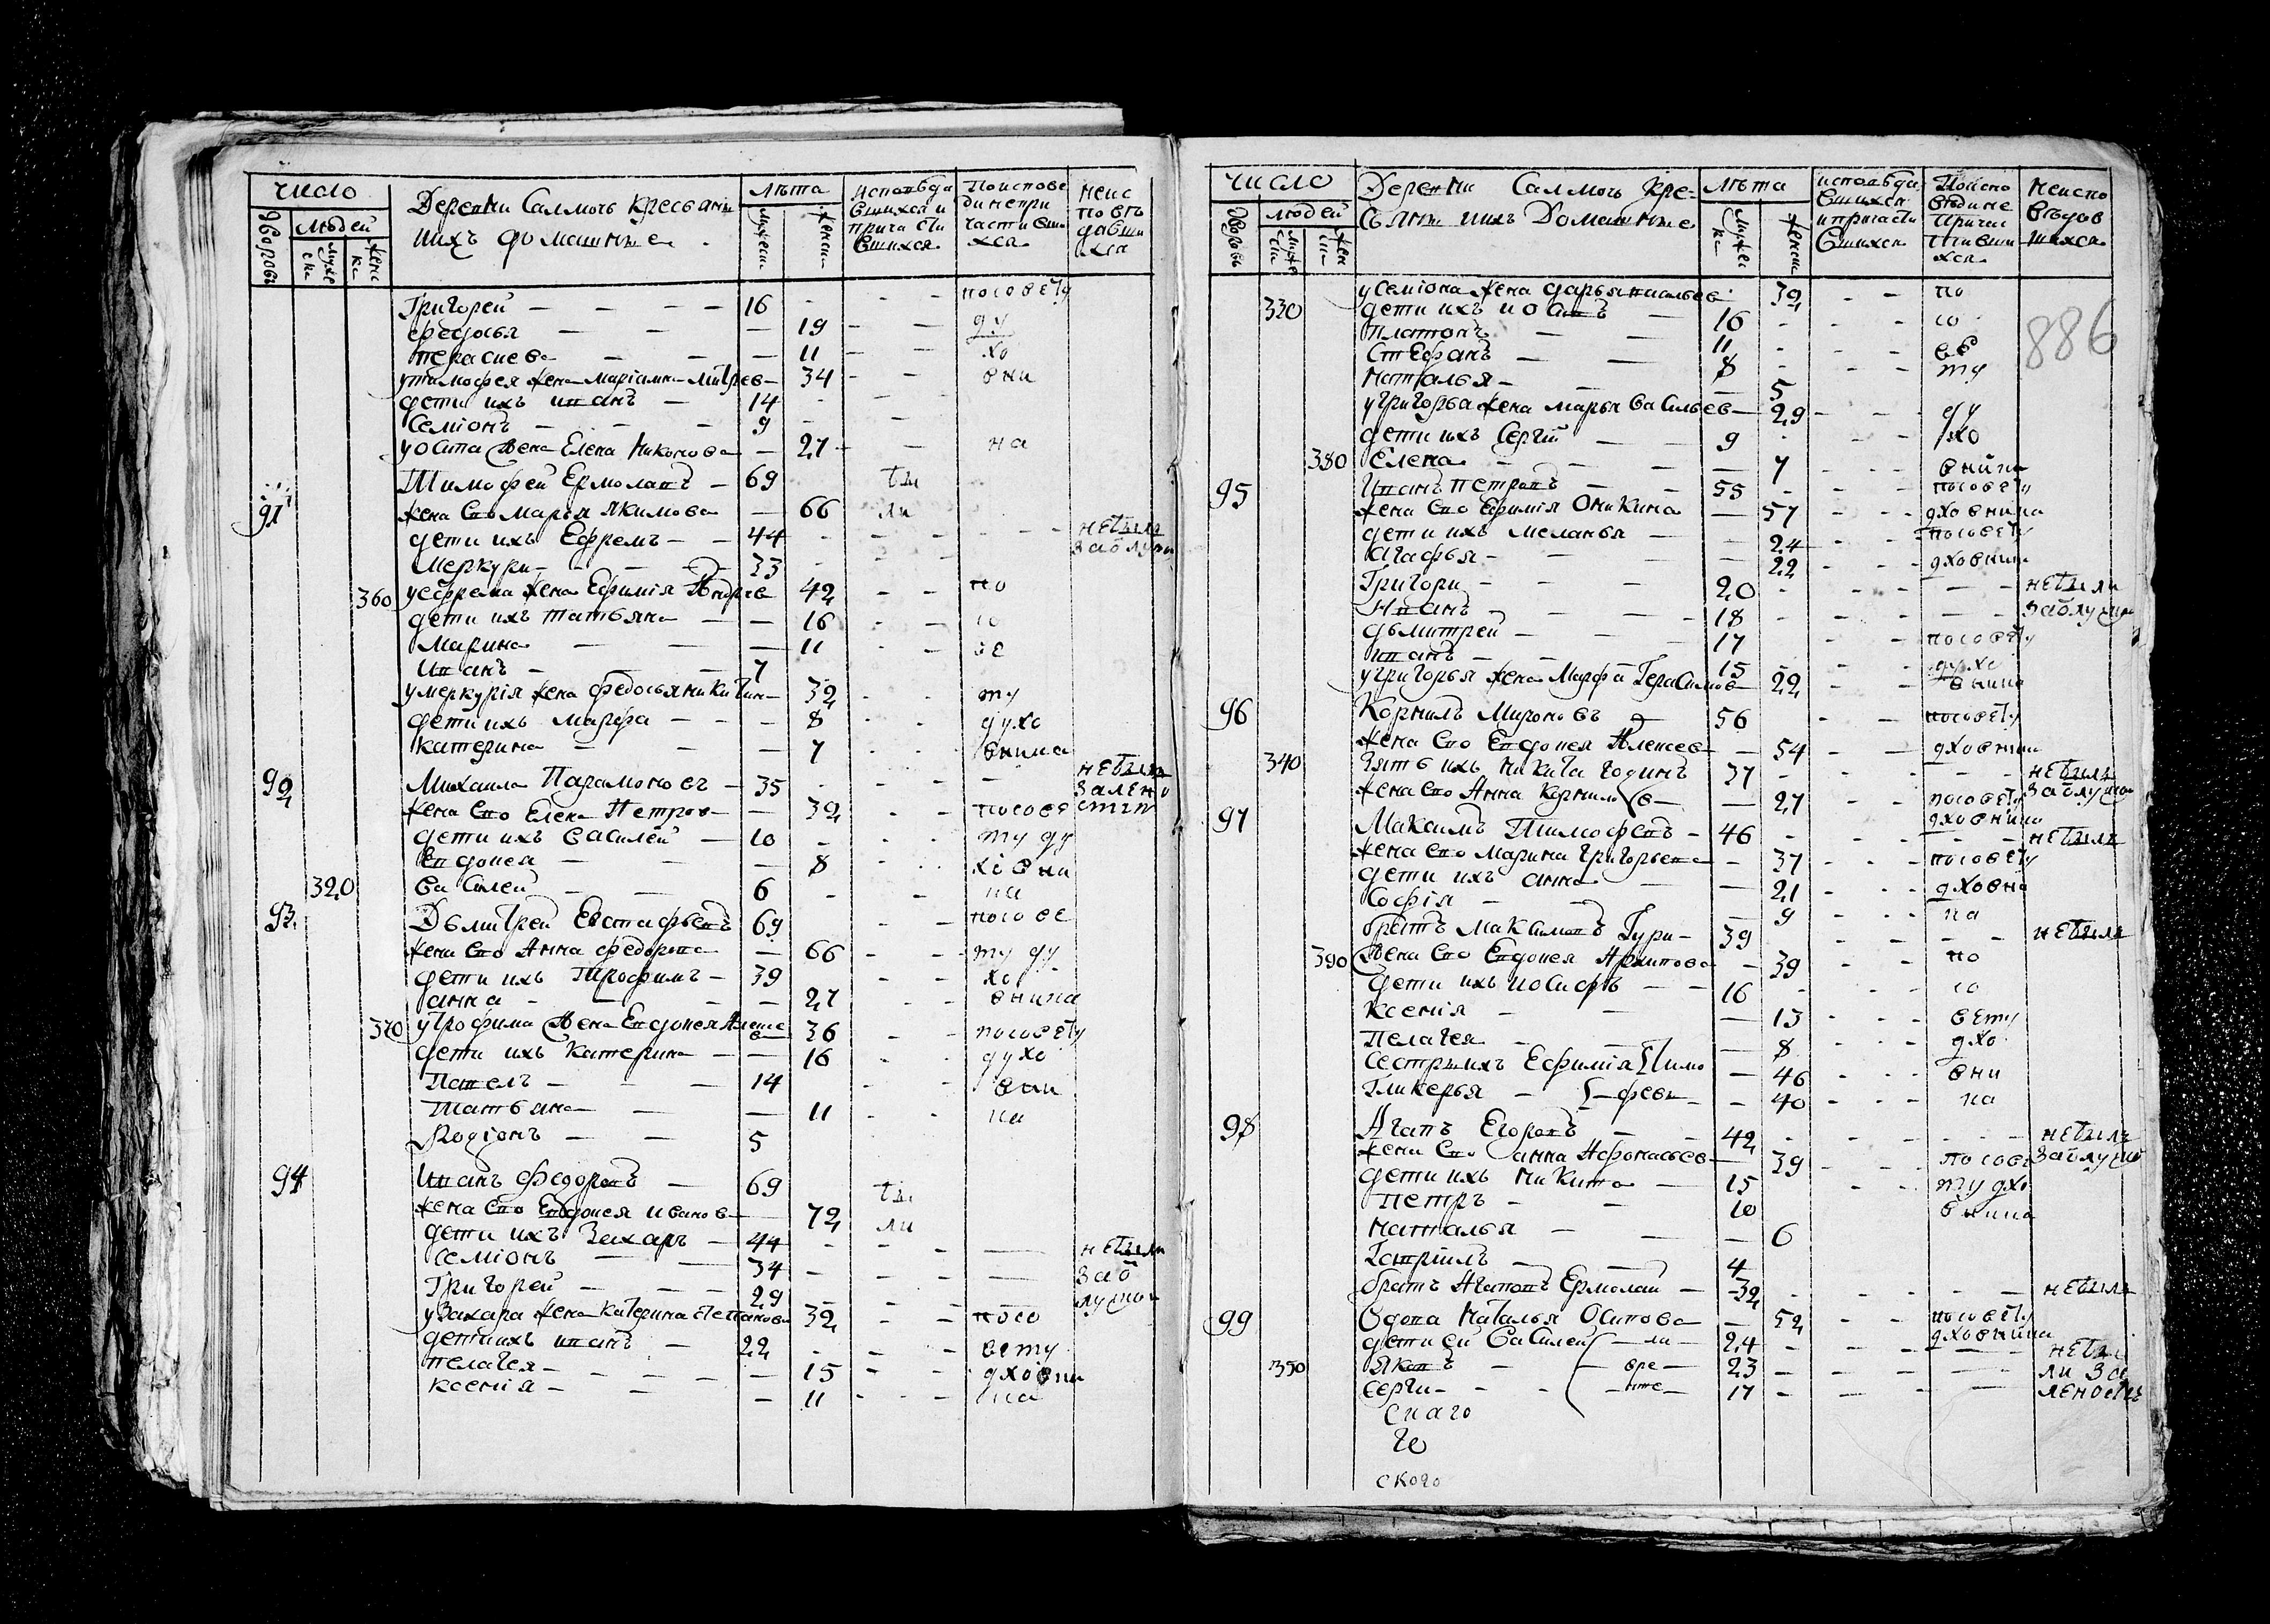 число
Деревни Салмочь Кресьяни
ихъ домашние
лета
исповеда
вшихся и
причасти
вшихся
По испове
ди не при
частивши
хся
неис
повѣ
давши
хся
дворовъ
людей
муже
ск
женс
ка
Григорей — 16 посовету
федосья — 19 ду
11 хо
у тимофея жена мариамна митрев 34 вни
дети ихъ иванъ — 14
Семіонъ — 9
у осипа жена Елена Никонова — 27 на
91
Тимофей Ермолавъ — 69 бы
жена Его Марья Якимова — 66 ли
дети ихъ Ефремъ — 44 небыли
Меркури — 33
360 у ефрема жена Ефимія Андрев 42 по
дети ихъ татьяна — 16 со
Марина — 11 ве
Иванъ — 7
у меркурія жена федосья никитин 32 ту
дети ихъ марфа — 8 духо
катерина — 7 внива
92 Михаила Парамоновъ — 35 небыли
жена Его Елена Петров — 32 посове
дети ихъ василей — 10 ту ду
Евдокея — 8 хо вни
320 василей — 6 на
93 Дьмитрей Евстафьевъ 69 посове
жена Его Анна федорова — 66 ту ду
дети ихъ Трофимъ — 39 хо
анна — 27 внина
370 у трофима жена Евдокея Алексе
в 36 посовету
дети ихъ катерина — 16 духо
Павелъ — 14 вни
татьяна — 11 на
Родіонъ — 5
94 Иванъ федоровъ — 69 бы
жена Его Евдокея иванов — 72 ли
дети ихъ Захаръ — 44 небыли
семіонъ — 34 заб
Григорей — 29
у Захара жена катерина степанова 32 посо
дети ихъ иванъ — 22 вету
пелагея — 15 духовни
ксенія — 11 на
число
Деревни Салмочь кре-
сьяни ихъ Домашние
лета
исповеда
вшихся
и причасти
вшихся
По испо
ведине
Причас
тивши
хся
Неиспо
вѣдов
шихся
886
у семіона жена дарья 32 по
330 дети ихъ иосипъ — 16 со
платонъ — 11 ве
Стефанъ — 8 ту
наталья — 5
у григорья жена марья васильев — 29 ду
дети ихъ Сергій — 9 хо
380 елена — 7 внина
95 Иванъ петровъ — 55 посовету
жена Его Ефимія Оникина — 57 дховнина
дети ихъ меланья — 24 посовету
агафья — 22 дховнина
Григори — 20 небыли
Иванъ — 18
дьмитрей — 17 посовету
иванъ — 15 духо
у григорья жена Марфа Герасимов 22 внина
96 Корнилъ Мироновъ — 56 посовету
жена Его Евдокея Алексев — 54 дховнина
340 зять ихъ никита родинъ 37 небылъ
жена его Анна Корнилов — 27 посовету
дховнина
97 Максимъ Тимофевъ — 46 небылъ
жена его Марина григорьева — 37 посовету
дети ихъ анна — 21 дховни
Софія — 9 на
братъ максимовъ Гури — 39 небылъ
390 жена Его Евдокея Архипова — 39 по
дети ихъ иосифъ — 16 со
ксенія — 13 вету
Пелагея — 8 дхо
сестры ихъ Ефимія Тимо — 46 вни
Гликерья — феви — 40 на
98 Агапъ Егоровъ — 42 небылъ
жена Его анна Афонасьев — 39 посове
дети ихъ никита — 15 ту дхо
петръ — 10 внина
наталья — 6
Гаврилъ — 4
братъ Агаповъ Ермолай — 32 небылъ
99 вдова Наталья Осипова — 52 посовету
дховнина
дети ей Василей — ли — 24 небы
350 Яковъ — вре — 23 ли за
серги — 17 леностъ
снаго
го
ского